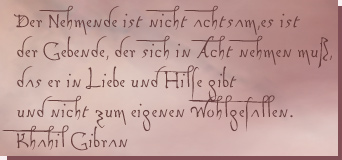 Der Nehmende ist nicht achtsam,es ist
der Gebende, der sich in Acht nehmen muß,
das er in Liebe und Hilfe gibt
und nicht zum eigenen Wohlgefallen.
Khahil Gibran